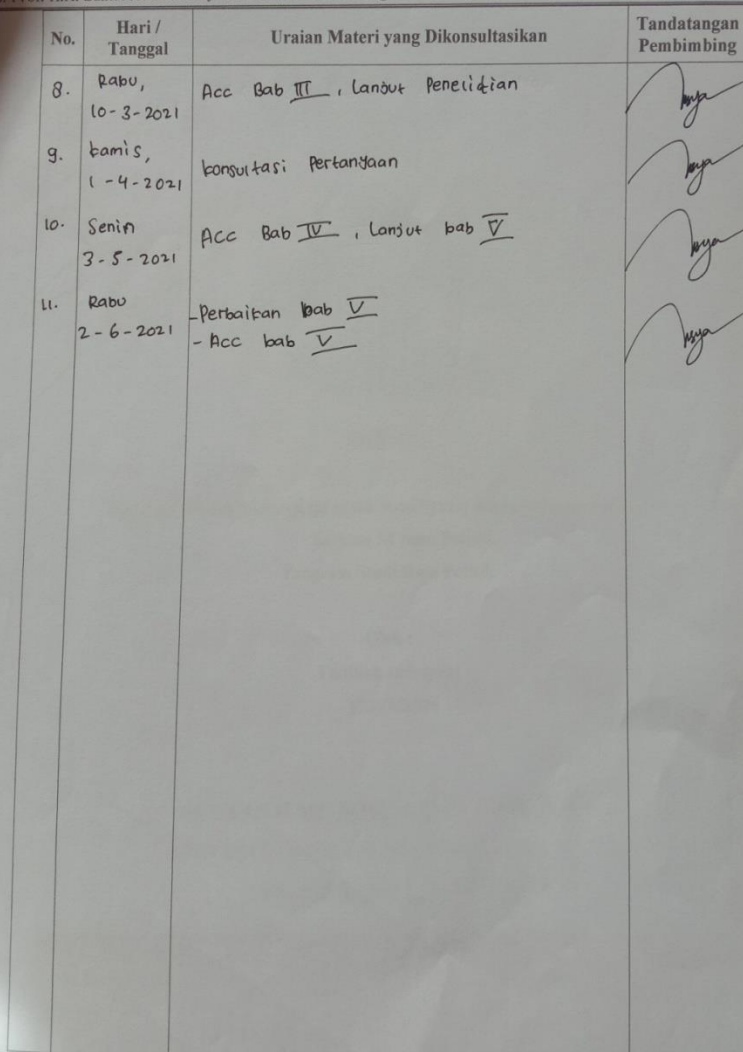 No.
Hari / Tanggal
Uraian Materi yang Dikonsultasikan
Tandatangan Pembimbing
8.
Rabu,
10-3-2021
Acc Bab III, Lanjut Penelitian
9.
Kamis,
1-4-2021
Konsultasi Pertanyaan
10.
Senin
3-5-2021
Acc Bab IV, Lanjut bab V
11.
Rabu
2-6-2021
-Perbaikan bab V
- Acc bab V